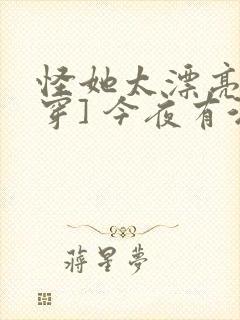 怪她太漂亮
穿] 今夜有
蔣星夢